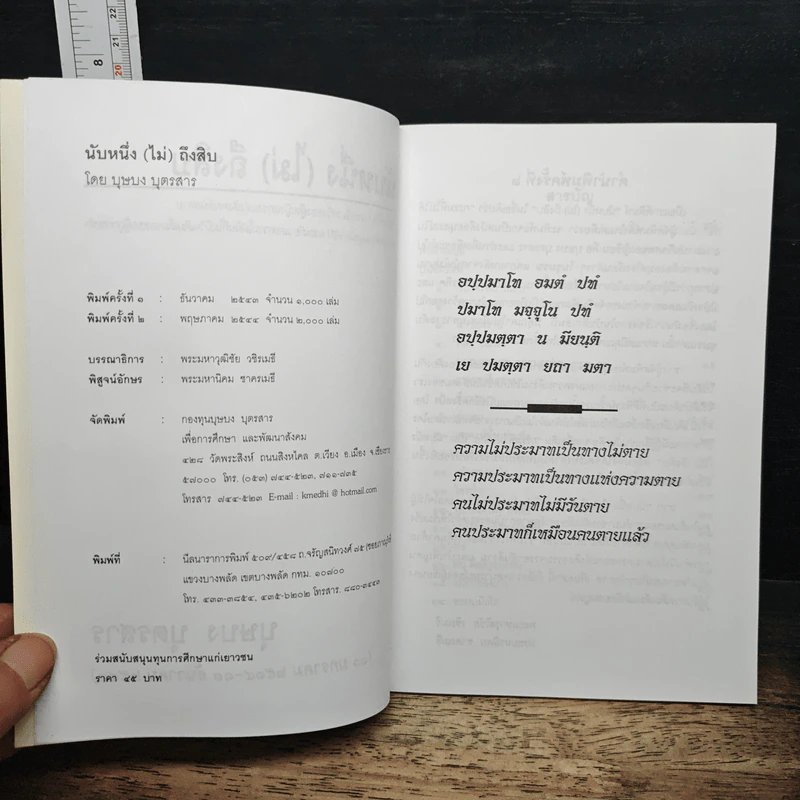 นับหนึ่ง (ไม่) ถึงสิบ
โดย บุษบง บุตรสาร
พิมพ์ครั้งที่ ๑ : ธันวาคม ๒๕๔๓ จำนวน ๑,๐๐๐ เล่ม
พิมพ์ครั้งที่ ๒ : พฤษภาคม ๒๕๔๔ จำนวน ๒,๐๐๐ เล่ม
บรรณาธิการ : พระมหาวุฒิชัย วชิรเมธี
พิสูจน์อักษร : พระมหานิคม ซาครเมธี
จัดพิมพ์ : กองทุนบุษบง บุตรสาร
เพื่อการศึกษา และพัฒนาสังคม
๔๒๘ วัดพระสิงห์ ถนนสิงหไคล ต.เวียง อ.เมือง จ.เชียงราย
๕๗๐๐๐ โทร. (๐๕๓) ๗๔๔-๕๒๓, ๗๑๑-๗๓๕
โทรสาร ๗๔๔-๕๒๓ E-mail : kmedhi @ hotmail.com
พิมพ์ที่ : นีลนาราการพิมพ์ ๕๐๙/๔๕๘ ถ.จรัญสนิทวงศ์ ๗๕
แขวงบางพลัด เขตบางพลัด กทม. ๑๐๗๐๐
โทร. ๔๓๓-๓๘๕๔, ๔๓๕-๖๒๐๒ โทรสาร. ๘๘๐-๑๔๔๓
ร่วมสนับสนุนทุนการศึกษาแก่เยาวชน
ราคา ๔๕ บาท
อปฺปมาโท อมตํ ปทํ
ปมาโท มจฺจุโน ปทํ
อปฺปมตฺตา น มียนฺติ
เย ปมตฺตา ยถา มตา
ความไม่ประมาทเป็นทางไม่ตาย
ความประมาทเป็นทางแห่งความตาย
คนไม่ประมาทไม่มีวันตาย
คนประมาทก็เหมือนคนตายแล้ว
8
22
21
20